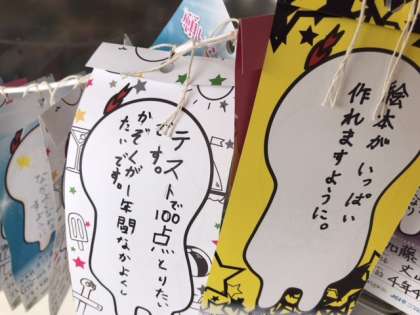 テストで100点とりたい
です。
かぞくが1年間なかよくし
たいです。
絵本が いっぱい
作れますように。
加藤